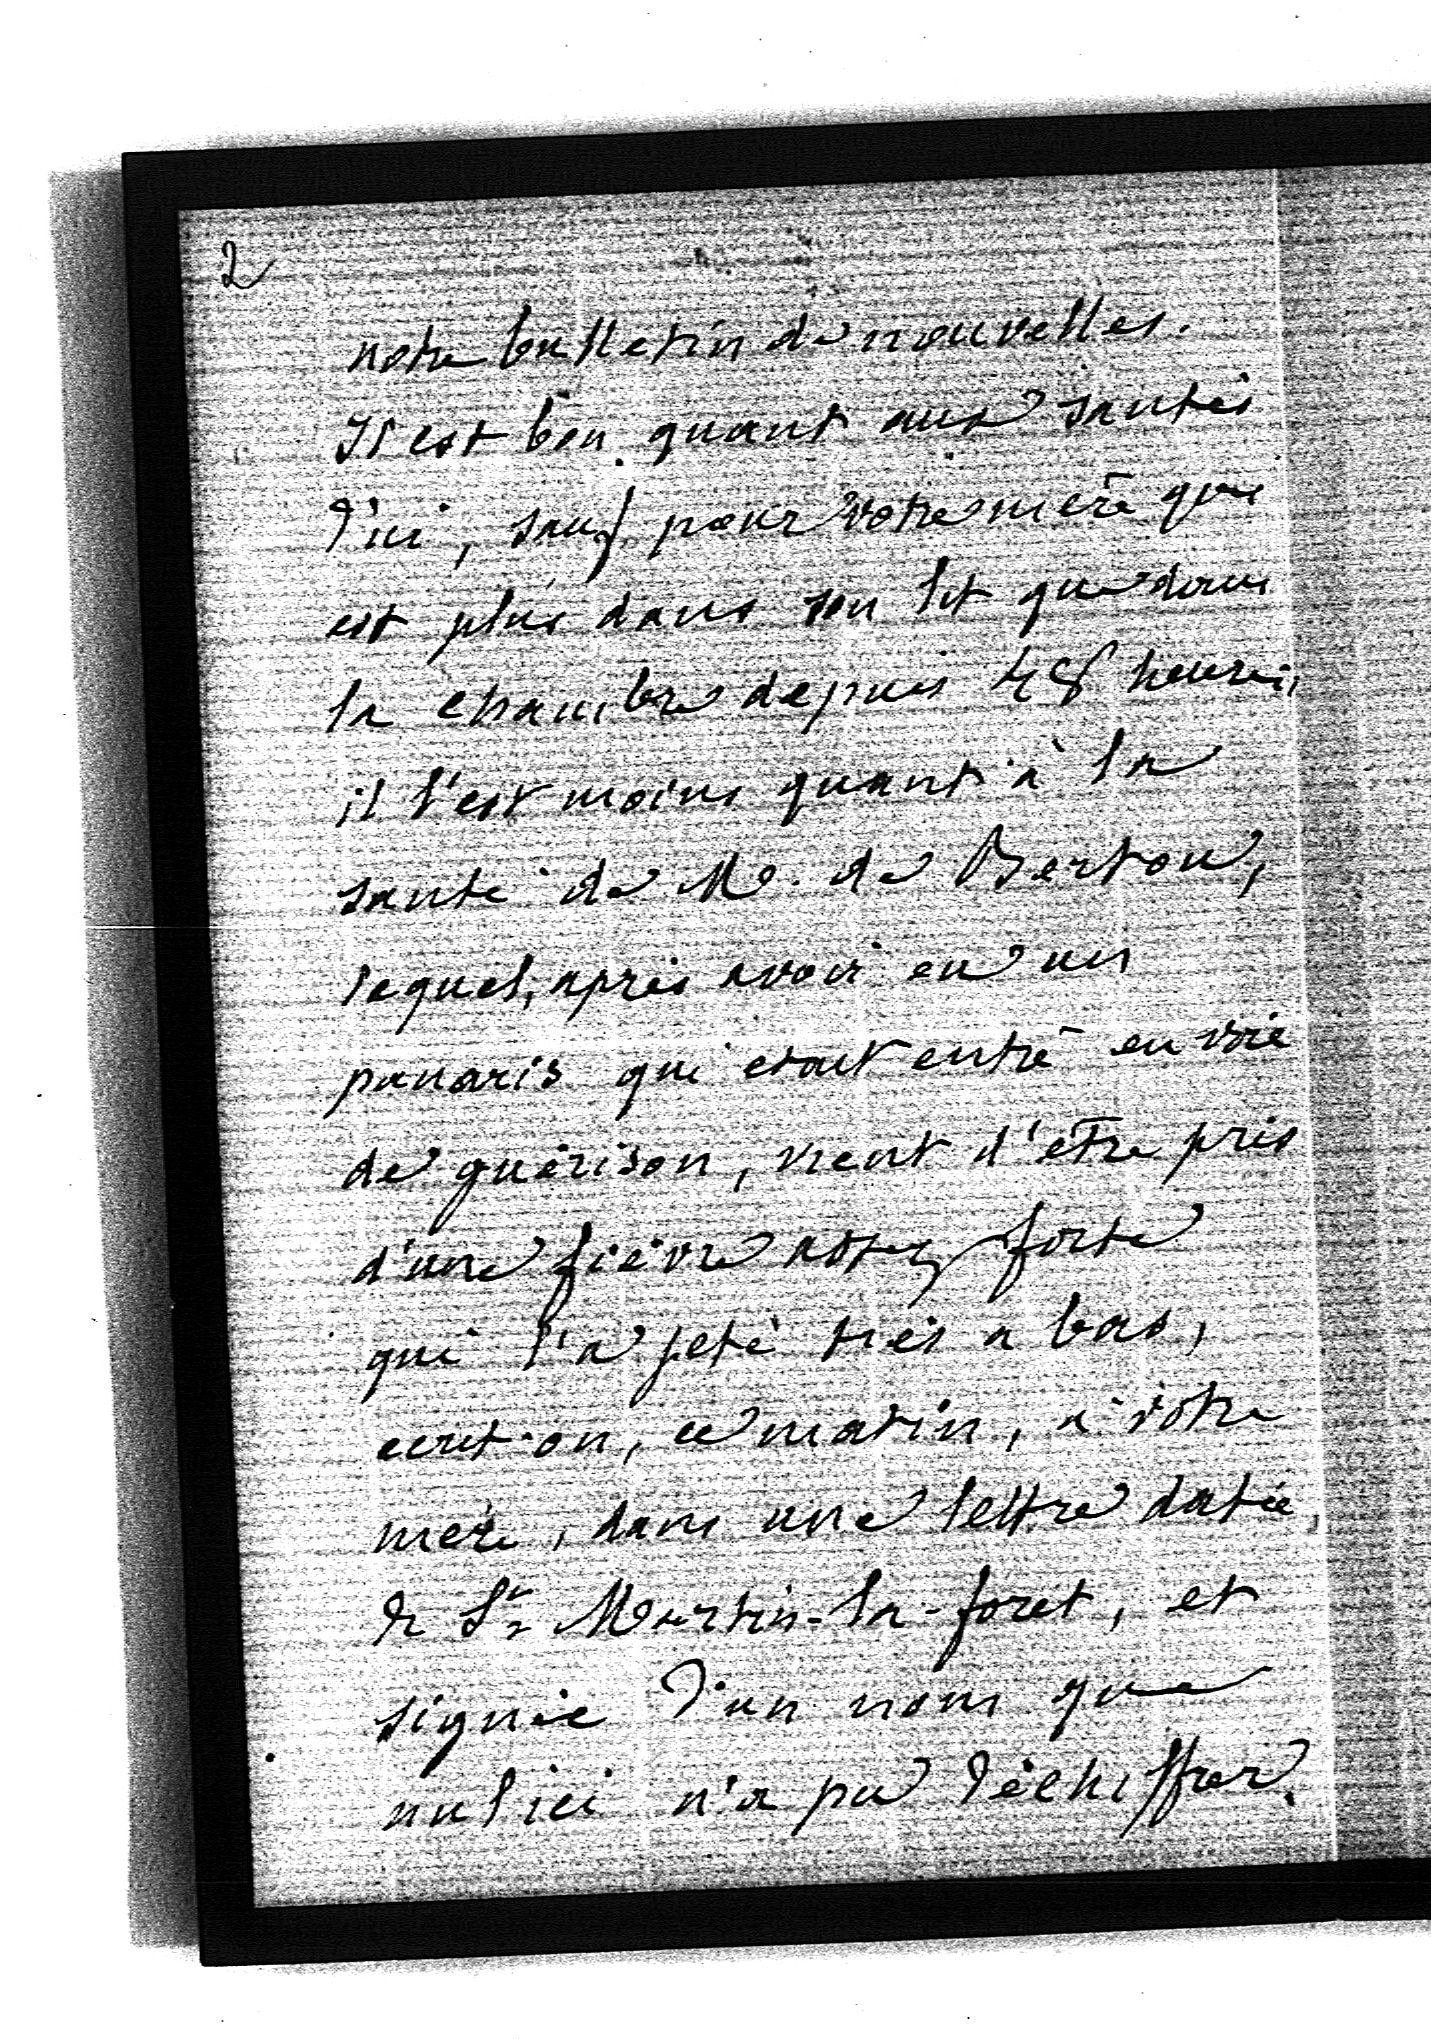 2
notre bulletin de nouvelles.
Il est bon quant aux santés
d'ici, sauf pour votre mère qui
est plus dans son lit que dans
la chambre depuis 48 heures,
il l'est moins quant à la
santé de M. de Bertou,
lequel, après avoir eu un
panaris qui etait entré en voie
de guérison, vient d'être pris
d'une fièvre assez forte
qui l'a jeté très a bas,
ecrit-on, ce matin, à votre
mère, dans une lettre datée
de St Martin-la-foret, et
signée d'un nom que
nul ici n'a pu déchiffrer.